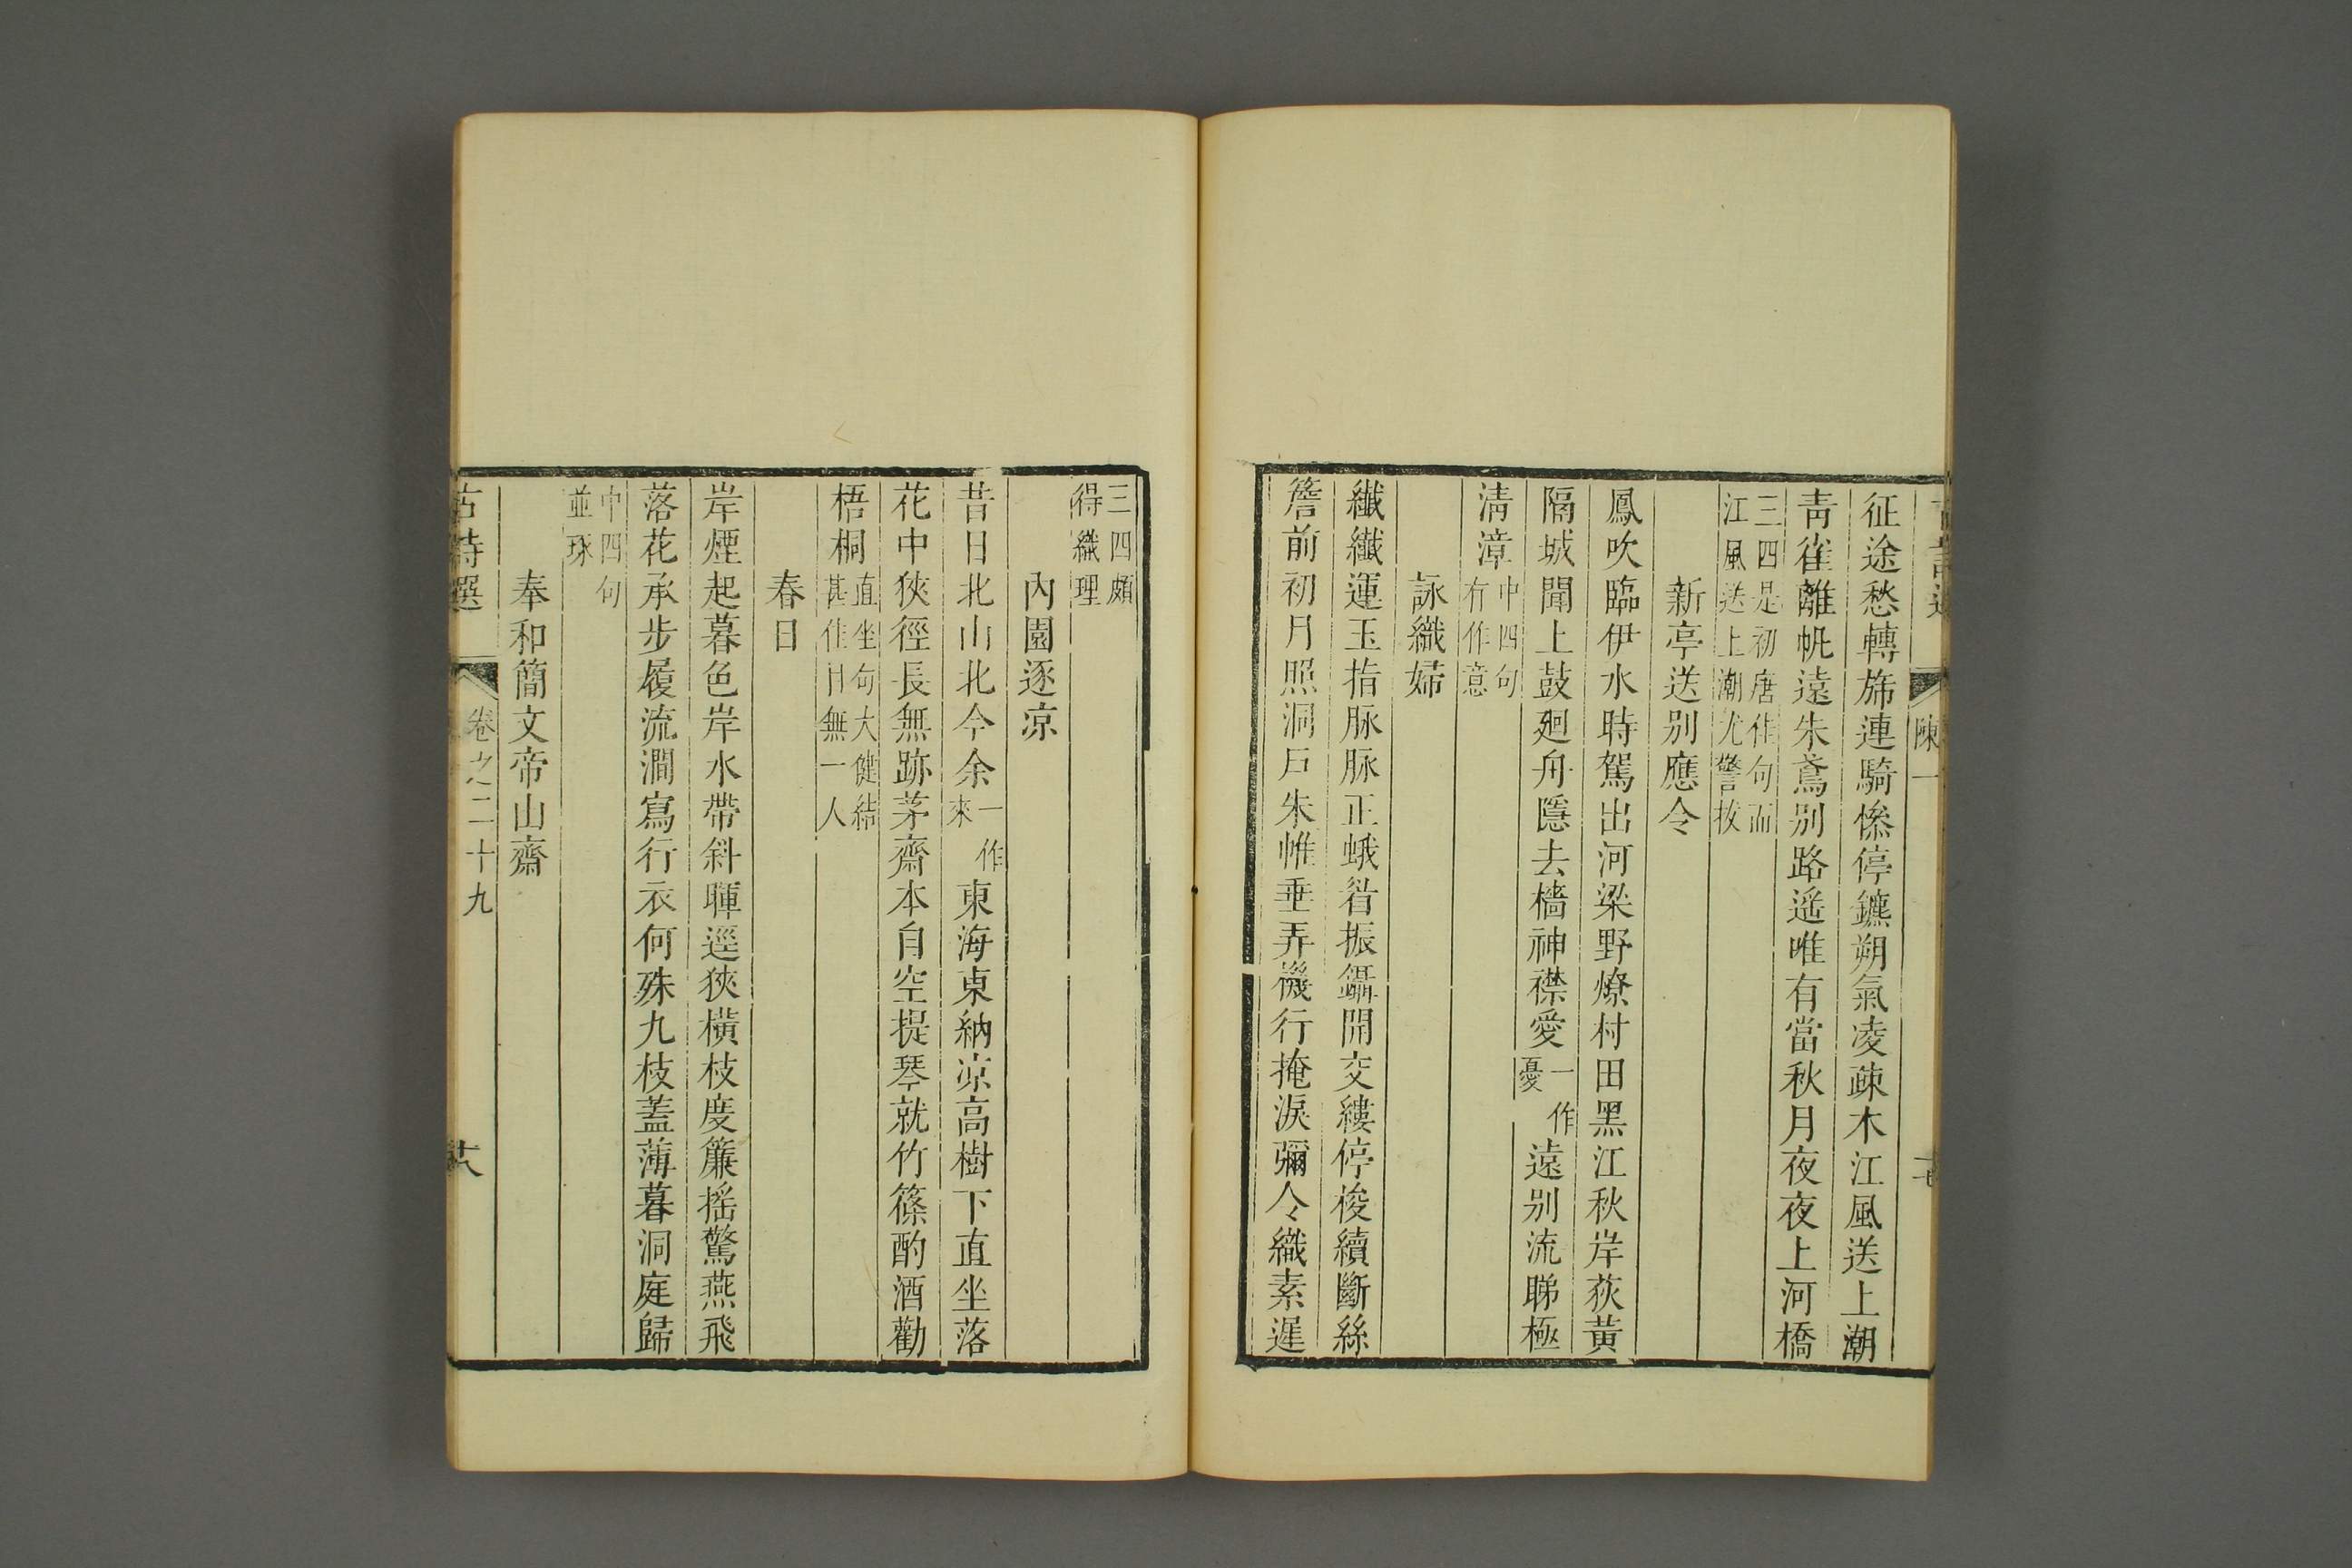 陳一
征途愁轉旆連騎慘停鑣朔氣凌疎木江風送上潮
靑雀離帆遠朱鳶別路遥唯有當秋月夜夜上河橋
三四是初唐佳句而
江風送上潮尤警拔
新亭送别應令
鳳吹臨伊水時駕出河梁野燎村田黑江秋岸荻黃
隔城聞上鼓廻舟隱去檣神襟愛一作憂遠別流睇極
淸漳中四句有作意
詠織婦
纖纖運玉指脉脉正蛾眉振鑷開交縷停梭續斷絲
簷前初月照洞戶朱帷垂弄機行掩淚彌令織素遲
三四頗
得織理
內園逐凉
昔日北山北今余一作來東海東納凉高樹下直坐落
花中狹徑長無跡茅齋本自空提琴就竹篠酌酒勸
梧桐直坐句大健結甚佳目無一人
春日
岸煙起暮色岸水帶斜暉逕狹橫枝度簾搖驚燕飛
落花承步履流澗寫行衣何殊九枝蓋薄暮洞庭歸
中四句
並琢
奉和簡文帝山齋
古詩選 卷之二十九 十八